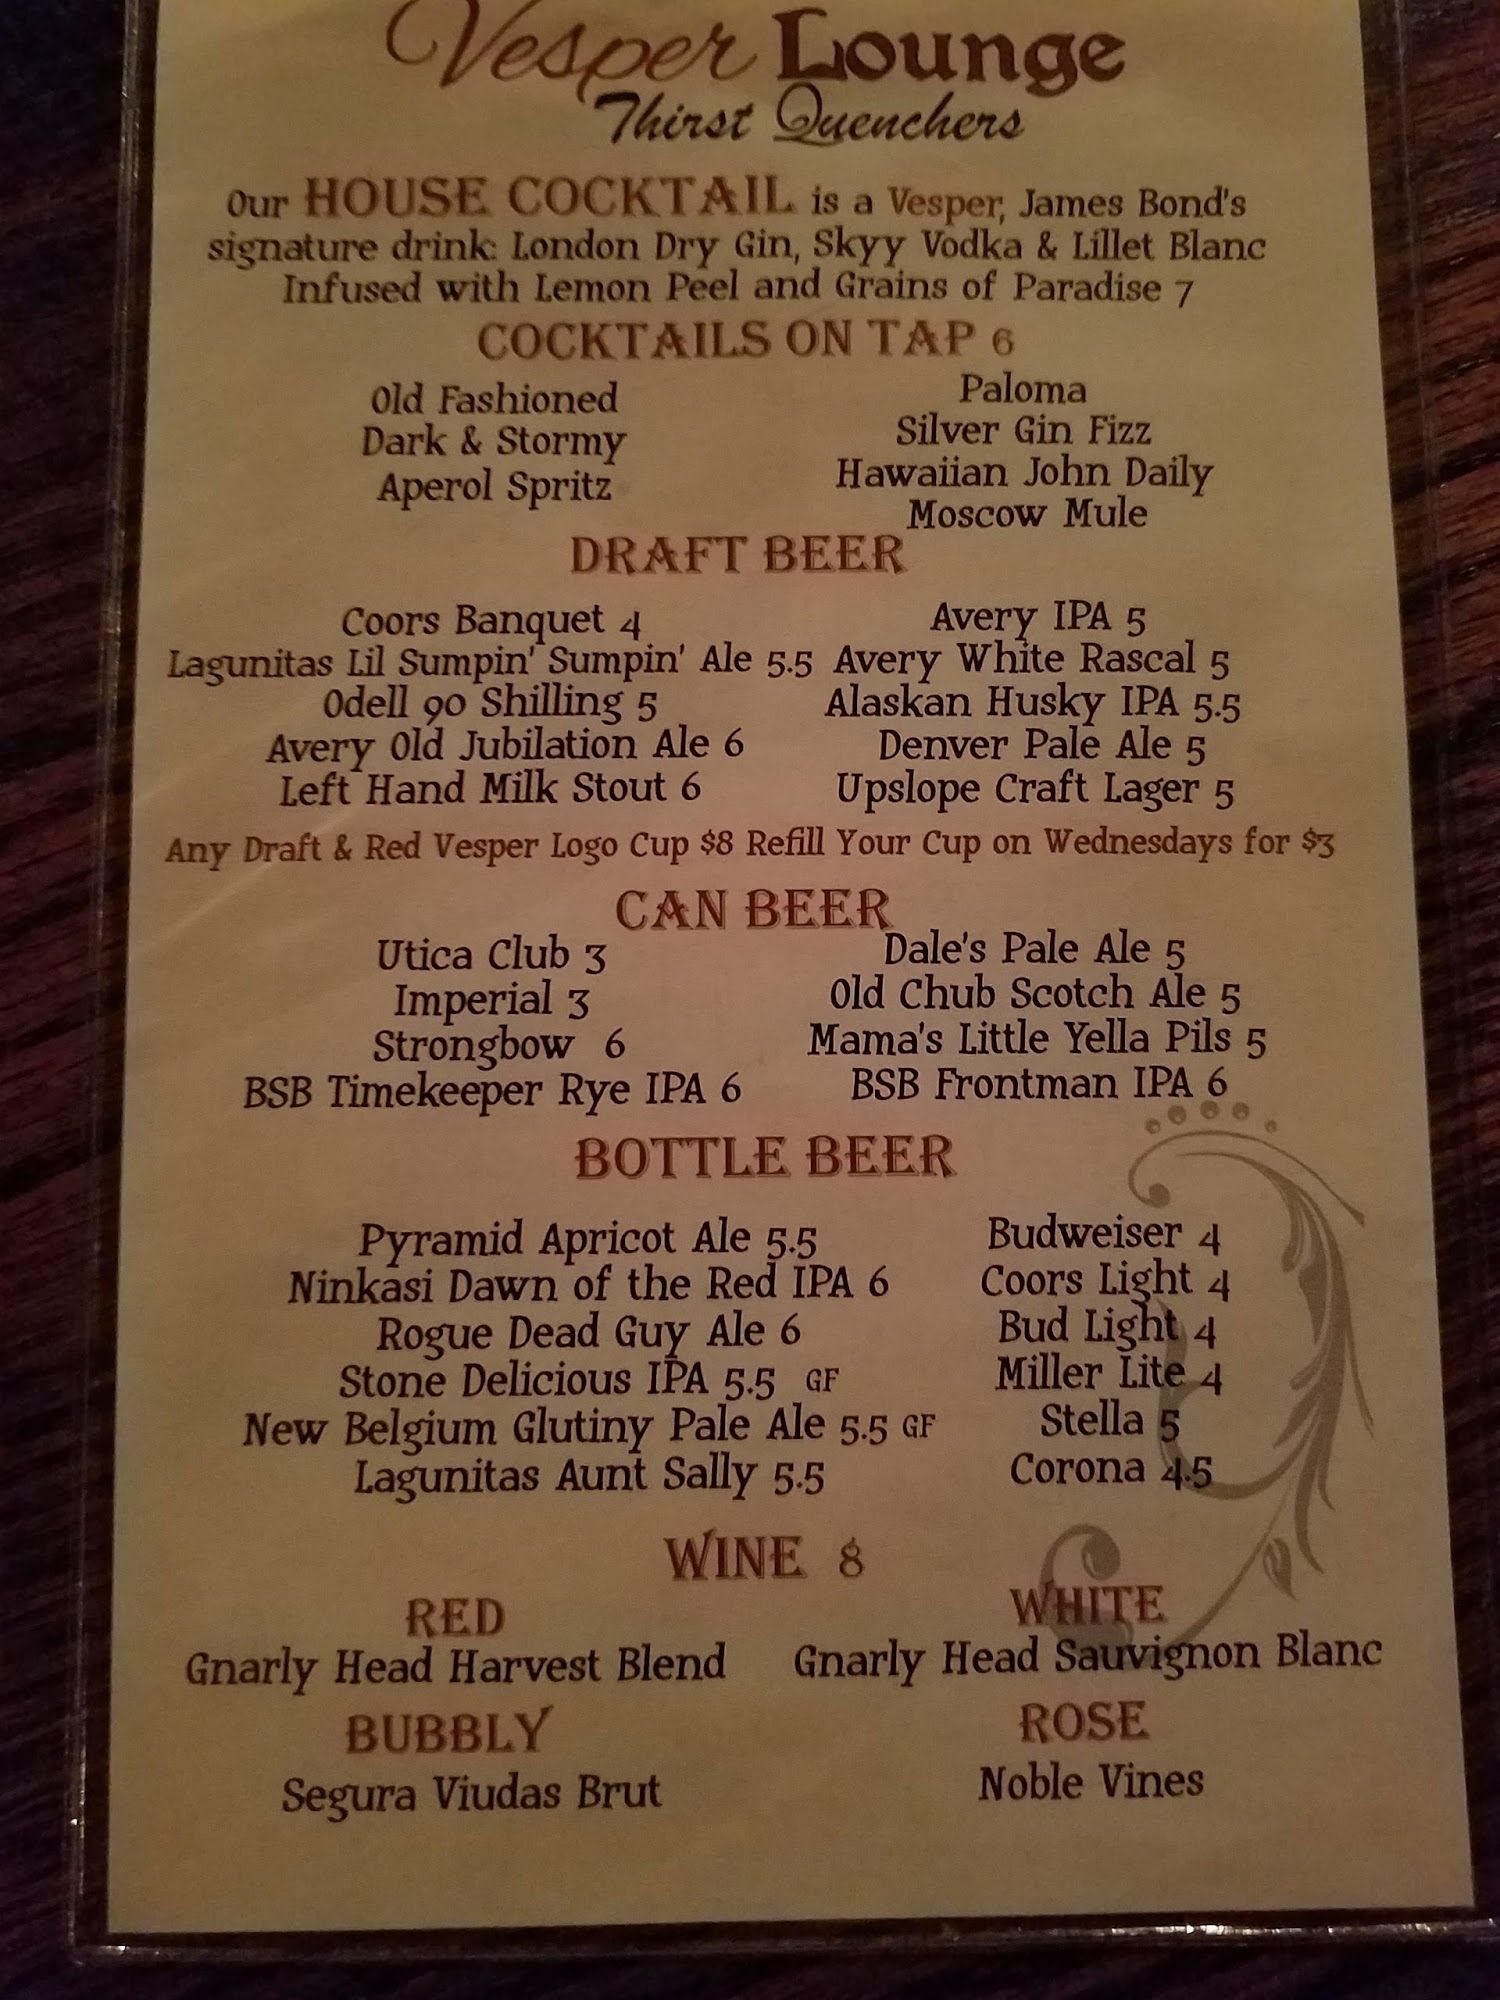 Vesper Lounge
Thirst Quenchers
Our HOUSE COCKTAIL is a Vesper, James Bond's
signature drink: London Dry Gin, Skyy Vodka & Lillet Blanc
Infused with Lemon Peel and Grains of Paradise 7
COCKTAILS ON TAP 6
Old Fashioned
Dark & Stormy
Aperol Spritz
Paloma
Silver Gin Fizz
Hawaiian John Daily
Moscow Mule
DRAFT BEER
Coors Banquet 4
Lagunitas Lil Sumpin' Sumpin' Ale 5.5
Odell 90 Shilling 5
Avery Old Jubilation Ale 6
Left Hand Milk Stout 6
Avery IPA 5
Avery White Rascal 5
Alaskan Husky IPA 5.5
Denver Pale Ale 5
Upslope Craft Lager 5
Any Draft & Red Vesper Logo Cup $8 Refill Your Cup on Wednesdays for $3
CAN BEER
Utica Club 3
Imperial 3
Strongbow 6
BSB Timekeeper Rye IPA 6
Dale's Pale Ale 5
Old Chub Scotch Ale 5
Mama's Little Yella Pils 5
BSB Frontman IPA 6
BOTTLE BEER
Pyramid Apricot Ale 5.5
Ninkasi Dawn of the Red IPA 6
Rogue Dead Guy Ale 6
Stone Delicious IPA 5.5 GF
New Belgium Glutiny Pale Ale 5.5 GF
Lagunitas Aunt Sally 5.5
Budweiser 4
Coors Light 4
Bud Light 4
Miller Lite 4
Stella 5
Corona 4.5
WINE 8
RED
Gnarly Head Harvest Blend
WHITE
Gnarly Head Sauvignon Blanc
BUBBLY
Segura Viudas Brut
ROSE
Noble Vines